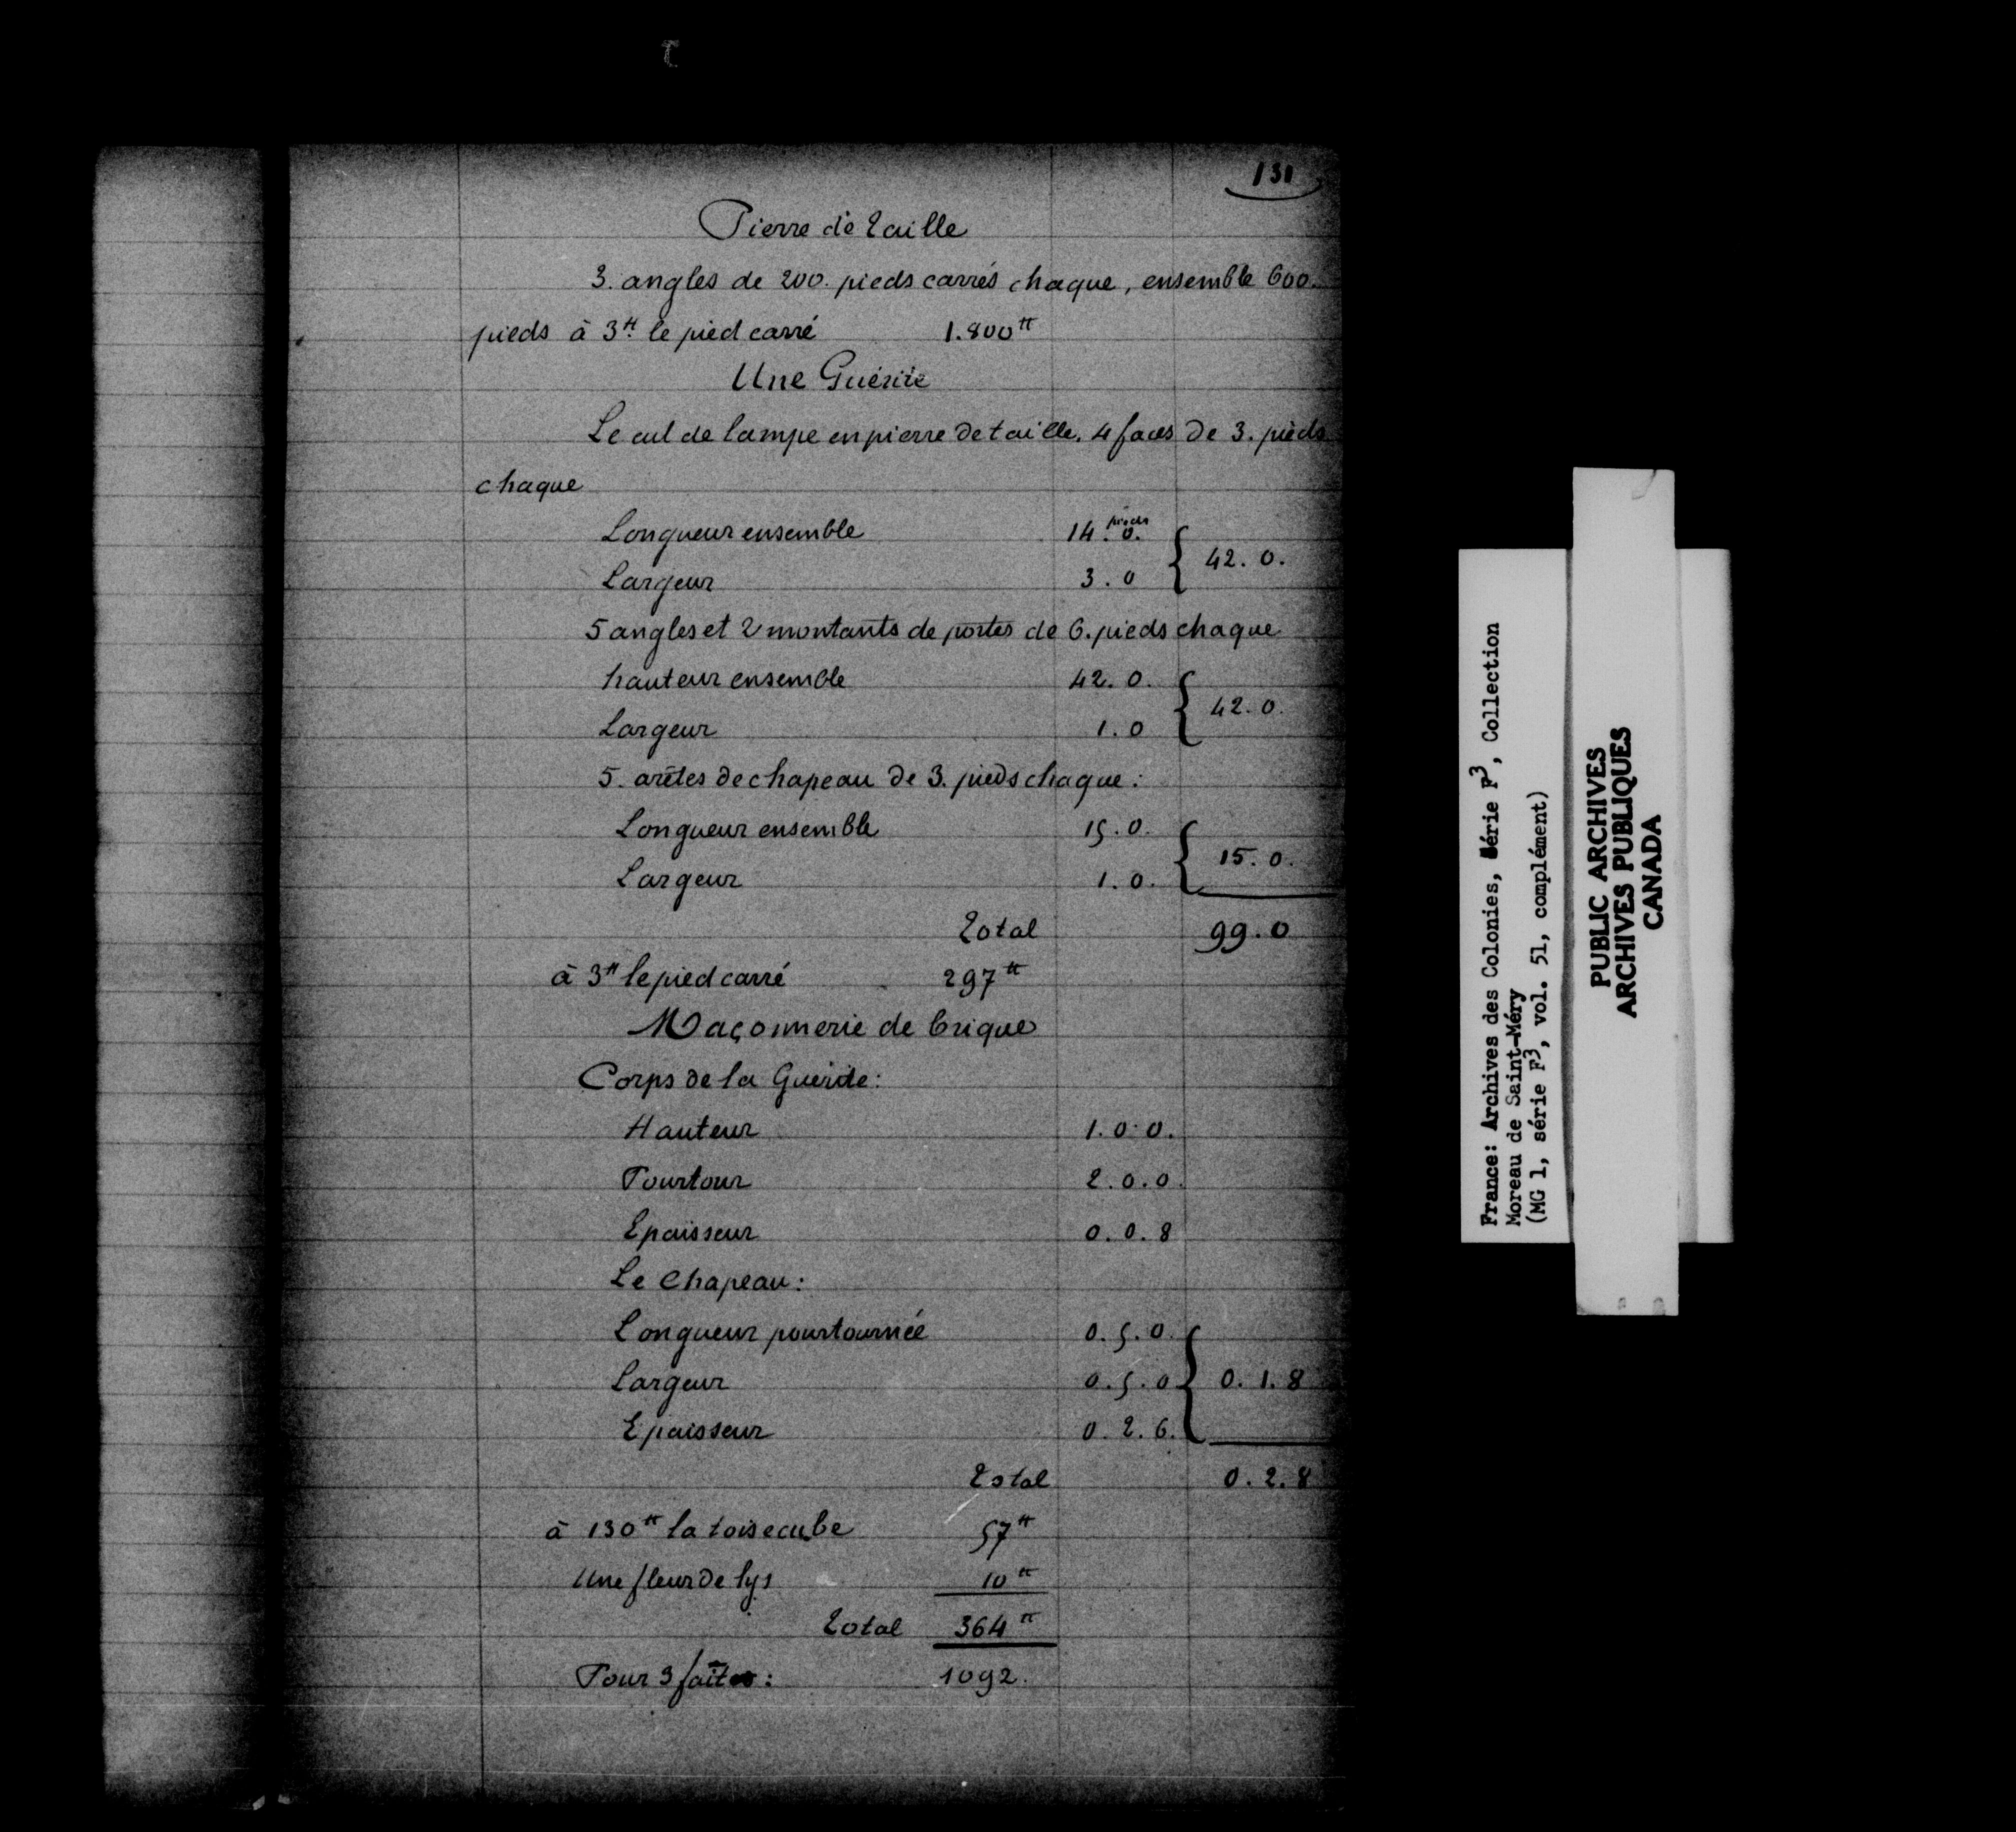 131
Pierre de taille
3. angles de 200. pieds carrés chaque, ensemble 600.
pieds à 3tt le pied carré 1.800tt
Une Guérite
Le cul de lampe en pierre de taille. 4 faces de 3. pieds
chaque
Longueur ensemble 14. pieds 0. { 42. 0.
Largeur 3. 0
5 angles et 2 montants de portes de 6. pieds chaque
hauteur ensemble 42. 0. { 42. 0.
Largeur 1. 0
5. arêtes de chapeau de 3. pieds chaque :
Longueur ensemble 15. 0. { 15. 0.
Largeur 1. 0.
Total 99. 0
à 3tt le pied carré 297tt
Maçonnerie de brique
Corps de la Guérite :
Hauteur 1. 0. 0.
Pourtour 2. 0. 0.
Epaisseur 0. 0. 8
Le Chapeau :
Longueur pourtournée 0. 5. 0.
Largeur 0. 5. 0 { 0. 1. 8
Epaisseur 0. 2. 6.
Total 0. 2. 8
à 130tt la toise cube 57tt
Une fleur de lys 10tt
Total 364tt
Pour 3 : 1092.
France: Archives des Colonies, Série F3, Collection
Moreau de Saint-Méry
(MG 1, série F3, vol. 51, complément)
PUBLIC ARCHIVES
ARCHIVES PUBLIQUES
CANADA